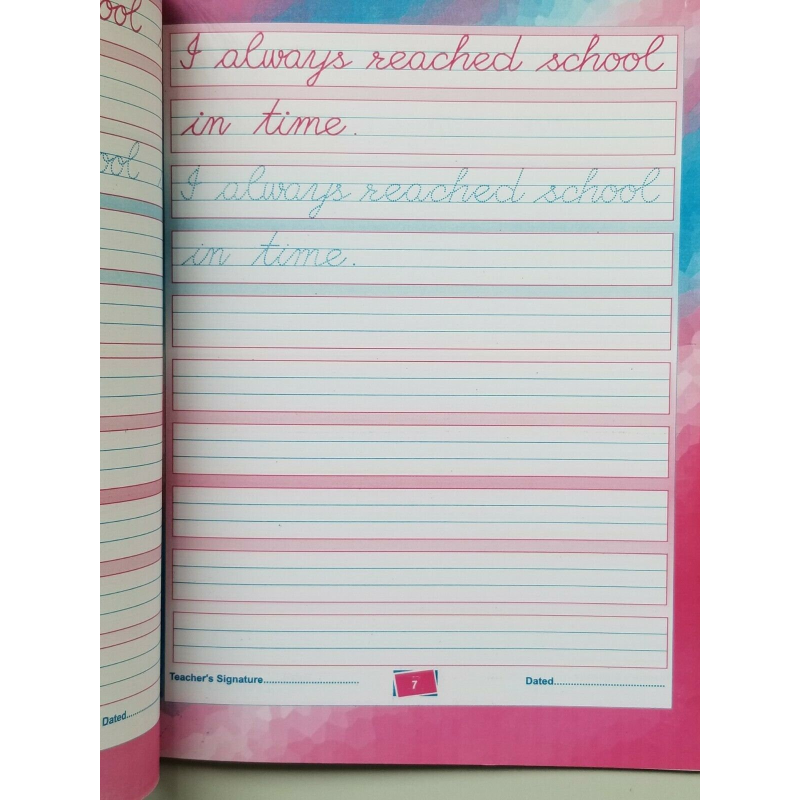 ool
I always reached school
in time.
ool
I always reached school
in time.
Teacher's Signature................................
7
Dated.....................................
Dated...........